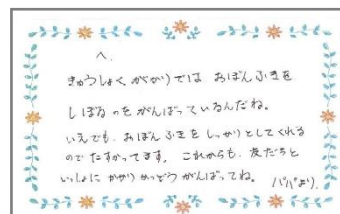 へ.
きゅうしょく がかりでは おぼんふきを
しぼるのを がんばっているんだね。
いえでも、おぼんふきを しっかりとしてくれる
ので たすかってます。 これからも、友だちと
いっしょに かかりかつどう がんばってね。
パパより.